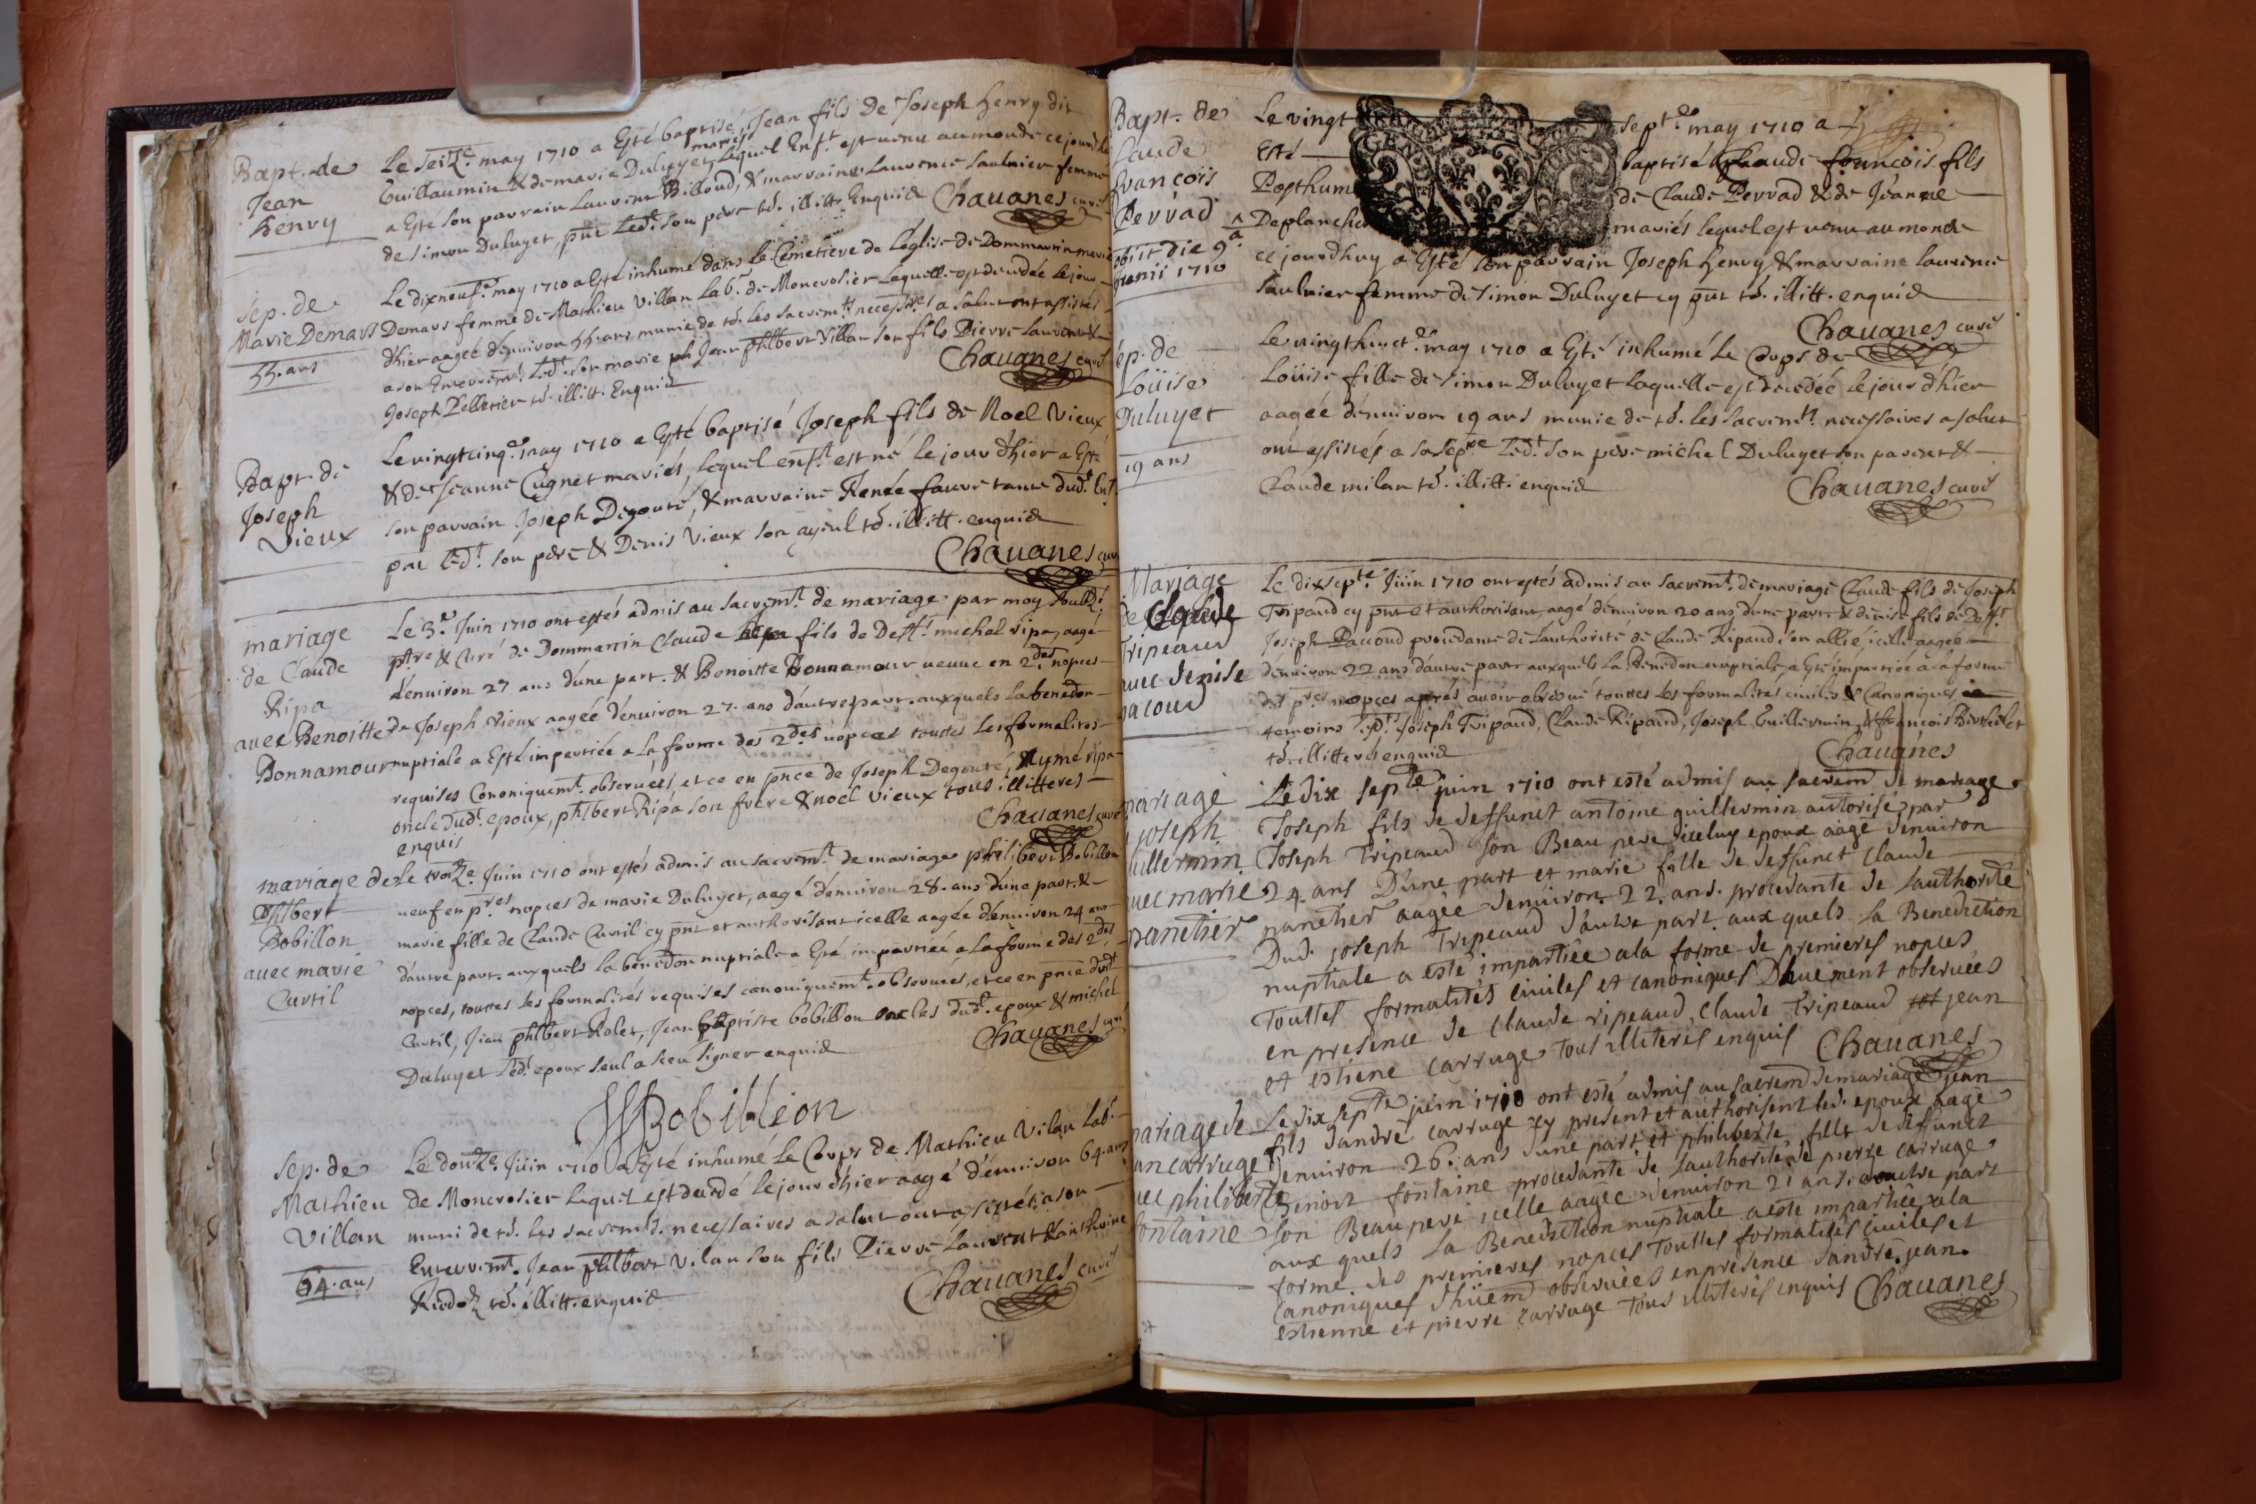 Bapt. de
Jean
henry
Le seizᵉ. may 1710 a Esté baptisé Jean fils de Joseph henry dit
Guillaumin & de marie Duluyet mariés, lequel Enfᵗ. est venu au monde ce jourdhuy
a Esté son parrain Laurent Billoud, & marraine Laurence Saulnier femme
de simon Duluyet, pnt Ledᵗ. son pere td. illitt. Enquid
Chauanes curé
sép. de
Marie Demars
55. ans
Le dixneufᵉ. may 1710 a Esté inhumé dans le Cemetiere de Léglise de Dommartin marie
Demars femme de Mathieu Villan Labʳ. de Moncrosier Laquelle est decedée le jour
dhier aagée dénuiron 55. ans munie de td. les sacremᵗˢ necessʳᵉˢ a salut ont assistés
a son Enterremᵗ. Ledᵗ. son marie Jean phlbert Villan son fils Pierre Laurent &
Joseph Pelletier td. illitt. Enquid
Chauanes curé
Bapt. de
Joseph
Vieux
Le vingtcinqᵉ. may 1710 a Esté baptisé Joseph fils de Noel Vieux
& de Jeanne Cugnet mariés, lequel enfᵗ. est né le jour dhier a Esté
son parrain Joseph Degouté, & marraine Renée fauvre tante dudᵗ. Enfᵗ.
pnt Ledᵗ. son pere & Denis Vieux son ayeul td. illitt. enquid
Chauanes curé
mariage
de Claude
Ripa
auec Benoitte
Bonnamour
Le 3ᵉ. Juin 1710 ont estés admis au sacremᵗ. de mariage par moy soubzᵉ.
ptre & Curé de Dommartin Claude Ripa fils de Deffᵗ. michel ripa, aagé
dénuiron 27 ans dúne part. & Benoitte Bonnamour veuue en 2ᵈᵉˢ nopces
de Joseph Vieux aagée dénuiron 27. ans dáutre part. auxquels la benedon
nuptiale a Esté impertiée a la forme des 2ᵈᵉˢ nopces touttes les formalités
requises Cononiquemᵗ. obseruées, et ce en pnce de Joseph Degouté, Aymé ripa
oncle dudᵗ. epoux, phlbert Ripa son frere & noél vieux tous illitteres
enquis
Chauanes curé
mariage de
Phlbert
Bobillon
auec marie
Curtil
Le treizᵉ. Juin 1710 ont estés admis au sacremᵗ. de mariage philibert Bobillon
ueuf en pʳᵉˢ nopces de marie Duluyet, aagé dénuiron 28. ans dúne part. &
marie fille de Claude Curtil cy pnt et authorisant icelle aagée dénuiron 24 ans
dáutre part. auxquels la benedon nuptiale a Esté impartiée a la forme des 2ᵈᵉˢ
nopces, touttes les formalités requises canoniquemᵗ. obseruées, et ce en pnce dudᵗ
Curtil, Jean phlbert Rolet, Jean baptiste bobillon oncles dudᵗ. epoux & michel
Duluyet Ledᵗ. epoux seul a sceu signer enquid
Chauanes curé
Bobillion
sep. de
Mathieu
Villan
64. ans
Le douzᵉ. Juin 1710 a Esté inhumé le Corps de Mathieu Vilan Labʳ.
de Moncrosier lequel est decedé le jour dhier aagé dénuiron 64. ans
muni de td. les sacremᵗˢ. necessaires a salut ont assistés a son
Enterremᵗ. Jean phlbert Vilan son fils Pierre Laurent & anthoine
td. illitt. enquid
Chauanes curé
Bapt. de
Claude
françois
Perrad
obiit die 9ᵃ
Junii 1710
Le vingt septᵉ. may 1710 a
Esté baptisé Claude françois fils
Posthume de Claude Perrad & de Jeanne
Deplanche mariés lequel est venu au monde
ce jourdhuy a Esté son parrain Joseph henry & marraine laurence
saulnier femme de simon Duluyet cy pnt td. illitt. enquid
Chauanes curé
sép. de
Loüise
Duluyet
19 ans
Le vingthuictᵉ. may 1710 a Esté inhumé le Corps de
Loüise fille de simon Duluyet laquelle est decedée le jour dhier
aagée dénuiron 19 ans munie de td. les sacremᵗˢ. necessaires a salut
ont assistés a sa sepʳᵉ Ledᵗ. son pere michel Duluyet son parent &
Claude milan td. illitt. enquid
Chauanes curé
Mariage
de Claude
Tripeaud
auec denise
pacoud
Le dixseptᵉ. Juin 1710 ont estés admis au sacremᵗ. de mariage Claude fils de Joseph
Tripaud cy pnt et authorisant, aagé dénuiron 20 ans dúne part. & denise fils de Deffᵗ.
Joseph Paccoud procedante de Lauthorité de Claude Ripaud son allié, icelle aagée
dénuiron 22 ans dáutre part auxquels la Benedon nuptiale a Esté impartiée a la forme
des pʳᵉˢ nopces aprés auoir obserué touttes les formalités ciuiles & Canoniques
temoins Ledᵗ. Joseph Tripaud, Claude Ripaud, Joseph Guillermin & françois Berthelet
td. illitterés enquid
Chauanes
mariage
de joseph
guillermin
auec marie
panethier
Le dix septᵉ juin 1710 ont esté admis au sacrem de mariage
Joseph fils de deffunct antoine guillermin autorisé par
Joseph Tripeaud son Beau pere iceluy epoux aagé denuiron
24 ans Dune part et marie fille de deffunct Claude
panether aagée denuiron 22. ans. procedante de lauthorité
Dud. joseph Tripeaud dautre part aux quels la Benediction
nuptiale a esté impartiée ala forme de premieres nopces
Touttes formalités ciuiles et canoniques Duement obseruées
en présence de Claude ripeaud, Claude Tripeaud jean
et estiene carruge Tous illiterés enquis
Chauanes
mariage de
jean carruge
auec philiberte
fontaine
Le dix septᵉ juin 1710 ont esté admis au sacrem de mariage jean
fils dandré carruge icy present et authorisent led. epoux aagé
denuiron 26. ans dune part et philiberte fille de defunct
Benoist fontaine procedante de lauthorité de pierre carruge
son Beau pere icelle aagée denuiron 21 ans dautre part
aux quels la Benediction nuptiale a esté impartiée ala
forme des premieres nopces Touttes formalités ciuiles et
canoniques dhüem obseruées en présence dandré, jean
estienne et pierre carruge Tous illiterés enquis
Chauanes